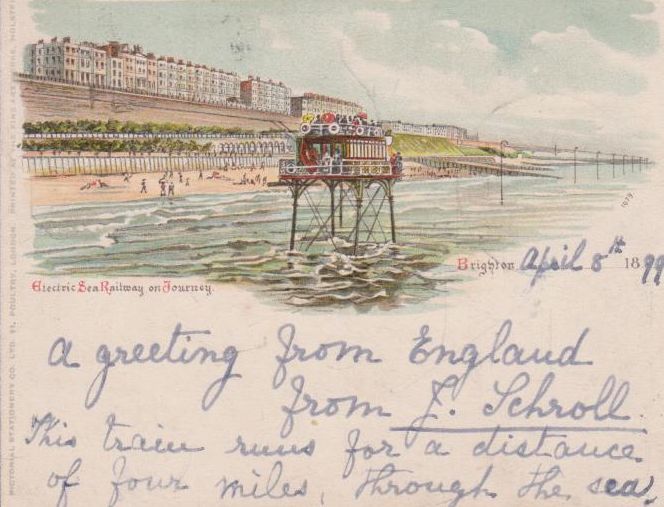 Electric Sea Railway on Journey.
Brighton April 8th 1899
1079
A greeting from England
from J. Schroll.
This train runs for a distance
of four miles, through the sea,
PICTORIAL STATIONERY CO. LTD. 51, POULTRY, LONDON.